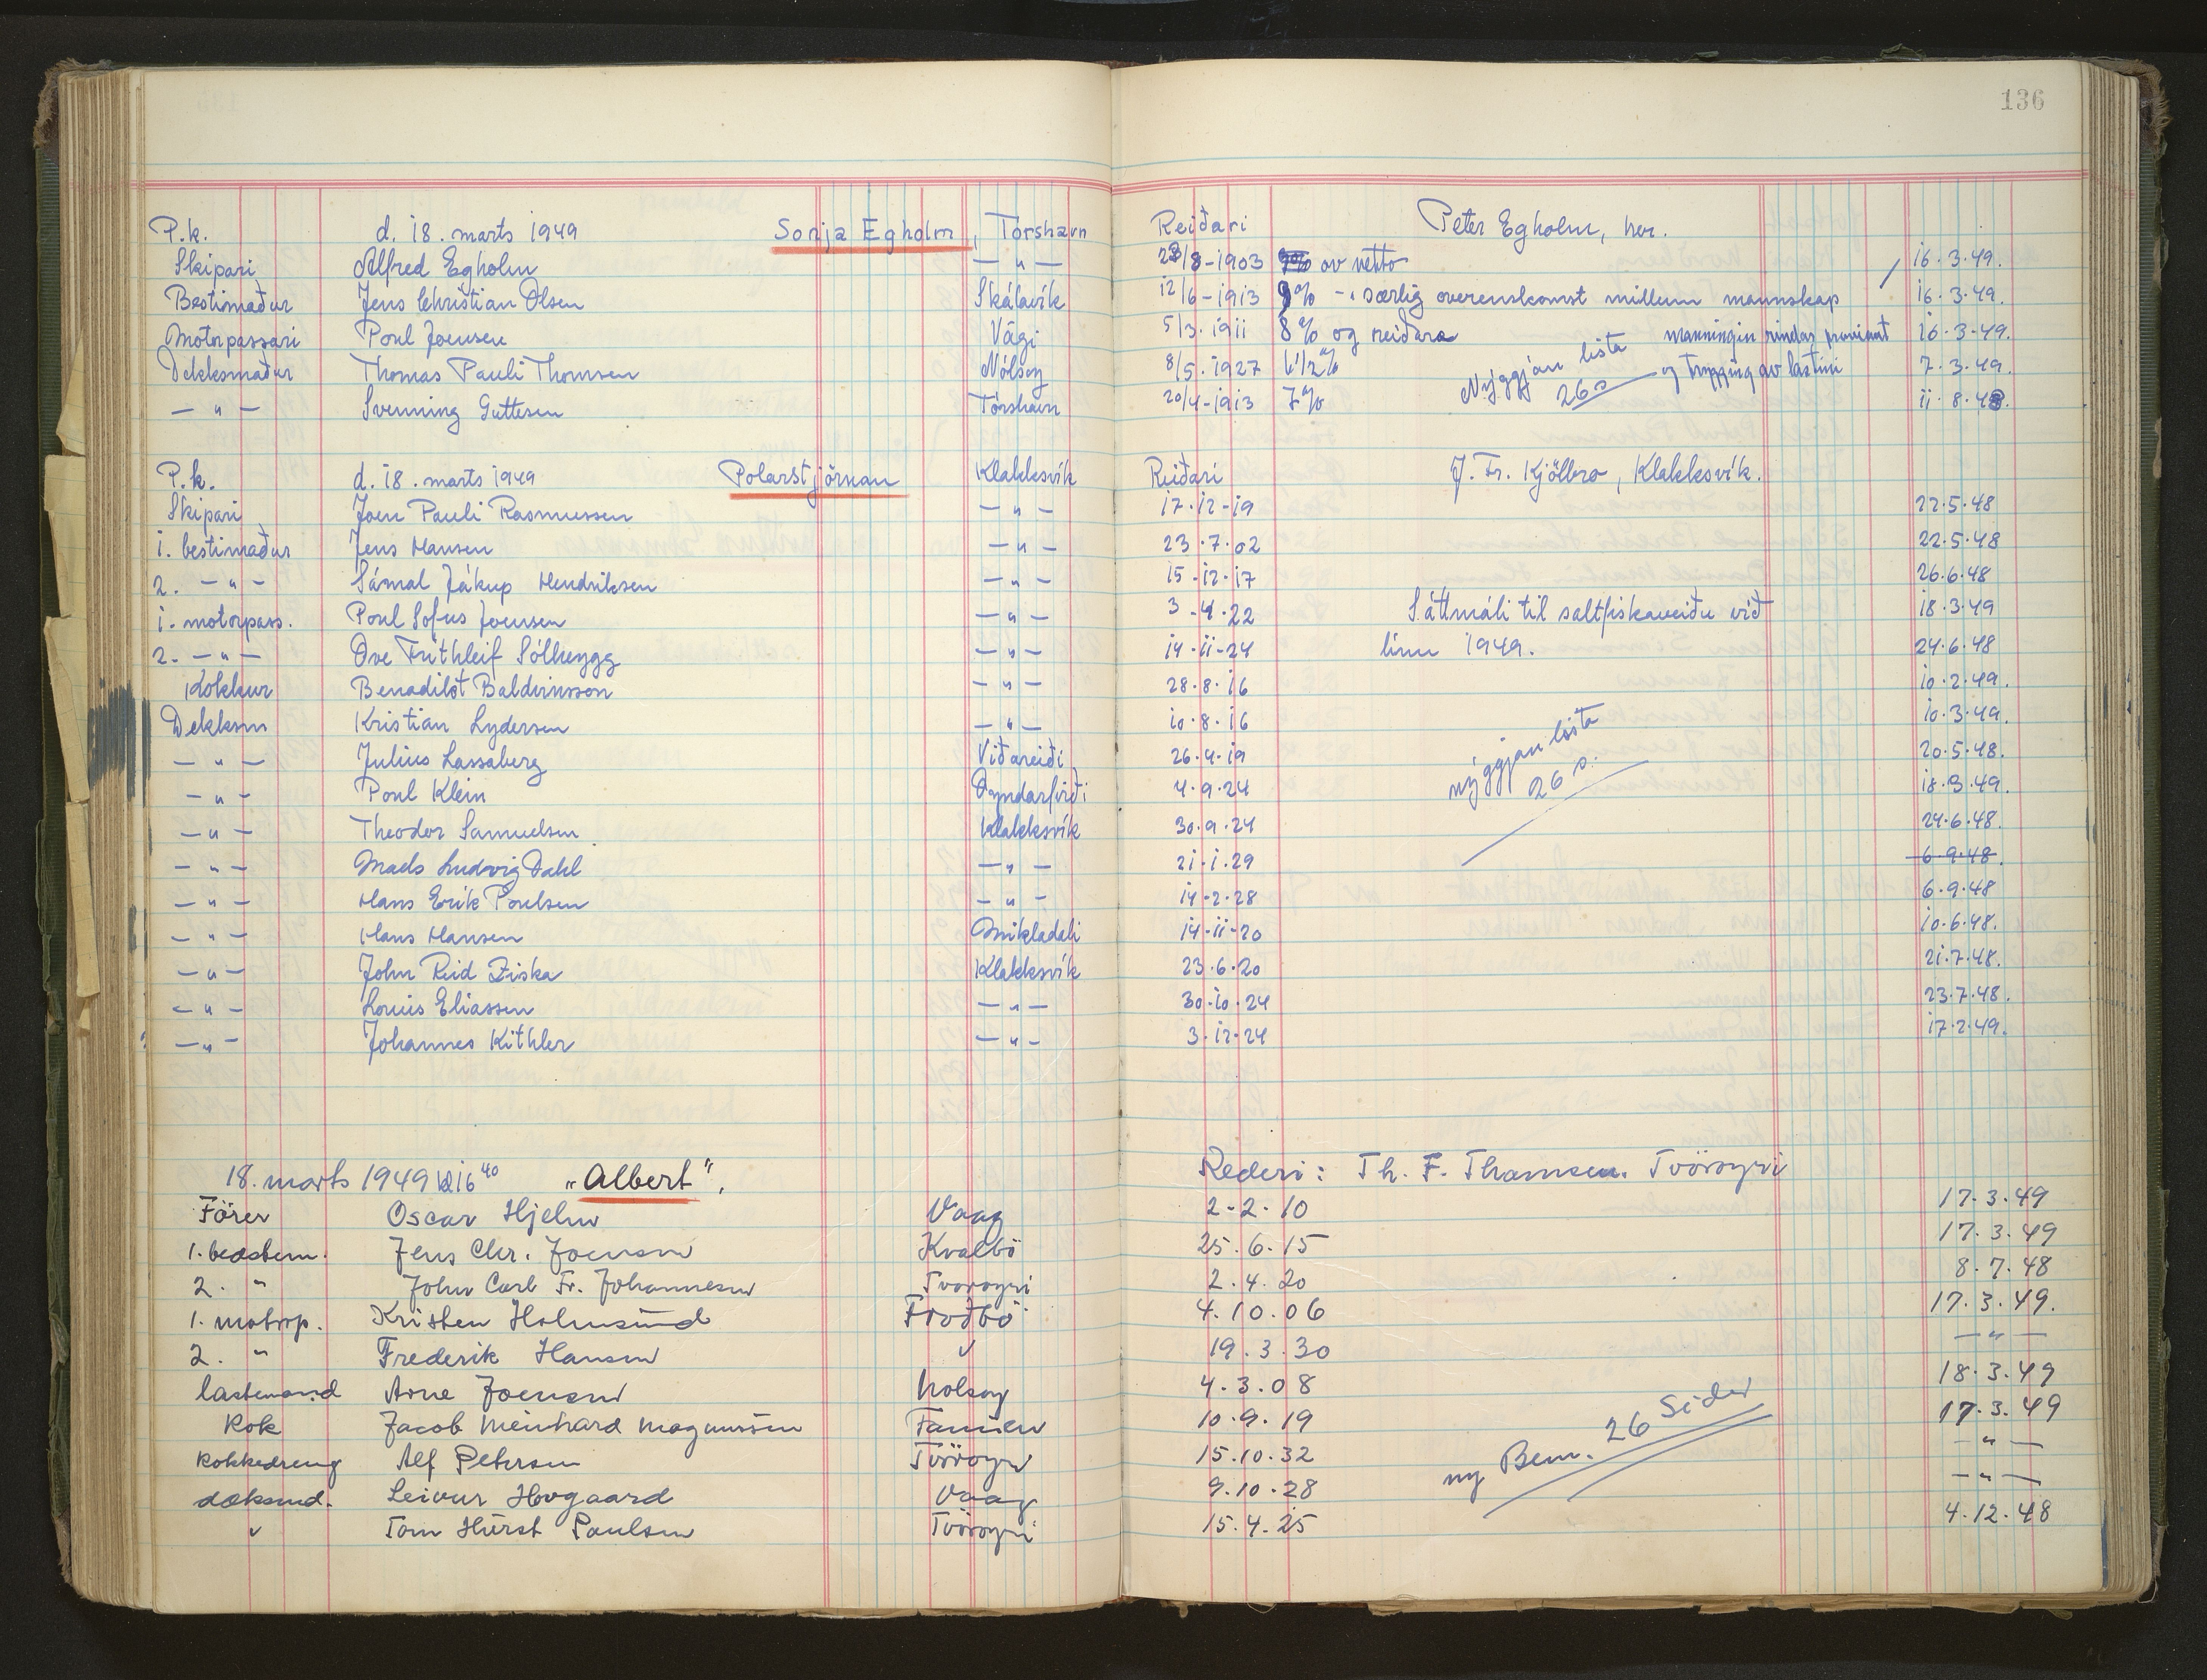 136
P.k. d. 18. marts 1949 Sonja Egholm, Tórshavn Reiðari Peter Egholm, her.
Skipari Alfred Egholm — " — 23/8-1903 ov netto 16.3.49.
Bestimaður Jens Christian Olsen Skálavík 12/6-1913 9% -. særlig overenskomst millum mannskap 16.3.49.
Motorpassari Poul Joensen Vági 5/3.1911 8% og reiðara manningin rindar proviant 16.3.49.
Dekksmaður Thomas Pauli Thomsen Nólsoy 8/5.1927 6 1/2% Nýggjan lista 26 s og trygging av lastini 7.3.49.
— " — Svenning Guttesen Tórshavn 20/4-1913 7% 11.8.48.
P.k. d. 18. marts 1949 Polarstjørnan Klakksvík Reiðari J. Fr. Kjölbro, Klakksvík.
Skipari Joen Pauli Rasmussen — " — 17.12-19 22.5.48
1. bestimaður Jens Hansen — " — 23.7.02 22.5.48
2. — " — Sámal Jákup Hendriksen — " — 15-12-17 26.6.48
1. motorpass. Poul Sofus Joensen — " — 3-4.22 Sáttmáli til saltfiskaveiðu við 18.3.49
2. — " — Ove Frithleif Sólheygg — " — 14-11-24 línu 1949. 24.6.48
Kokkur Benadikt Baldvinsson — " — 28.8.16 10.2.49.
Dekksm Kristian Lydersen — " — 10.8.16 10.3.49.
— " — Julius Lassaberg Viðareiði 26.4.19 nýggjan lista 20.5.48.
— " — Poul Klein Oyndarfirði 4.9.24 26 s. 18.3.49.
— " — Theodor Samuelsen Klakksvík 30.9.24 24.6.48.
— " — Mads Ludvig Dahl — " — 21.1.29 6.9.48.
— " — Hans Erik Poulsen — " — 14-2-28 6.9.48
— " — Hans Hansen Mikladali 14-11-20 10.6.48.
— " — John Reid Ziska Klakksvík 23.6.20 21.7.48.
— " — Louis Eliassen — " — 30.10.24 23.7.48.
— " — Johannes Kithler — " — 3.12-24 17.2.49.
18. marts 1949 kl 16 40 "Albert", Rederi: Th. F. Thomsen. Tvöroyri
Förer Oscar Hjelm Vaag 2-2.10 17.3.49
1. bedstem. Jens Chr. Joensen Kvalbö 25.6.15 17.3.49
2. " John Carl Fr. Johannesen Tvoroyri 2.4.20 8.7.48
1. motorp. Kristen Holmsund Frodbö 4.10.06 17.3.49.
2. " Frederik Hansen " 19.3.30 — " —
lastemand Arne Joensen Nolsoy 4.3.08 18.3.49
Kok Jacob Meinhard Magnussen Famien 10.9.19 17.3.49
Kokkedreng Alf Petersen Tvöroyri 15.10.32 ny Bem. 26 Sider — " —
dæksmd. Leivur Hovgaard Vaag 9.10.28 — " —
" Tom Hürst Paulsen Tvöroyri 15.4.25 4.12.48